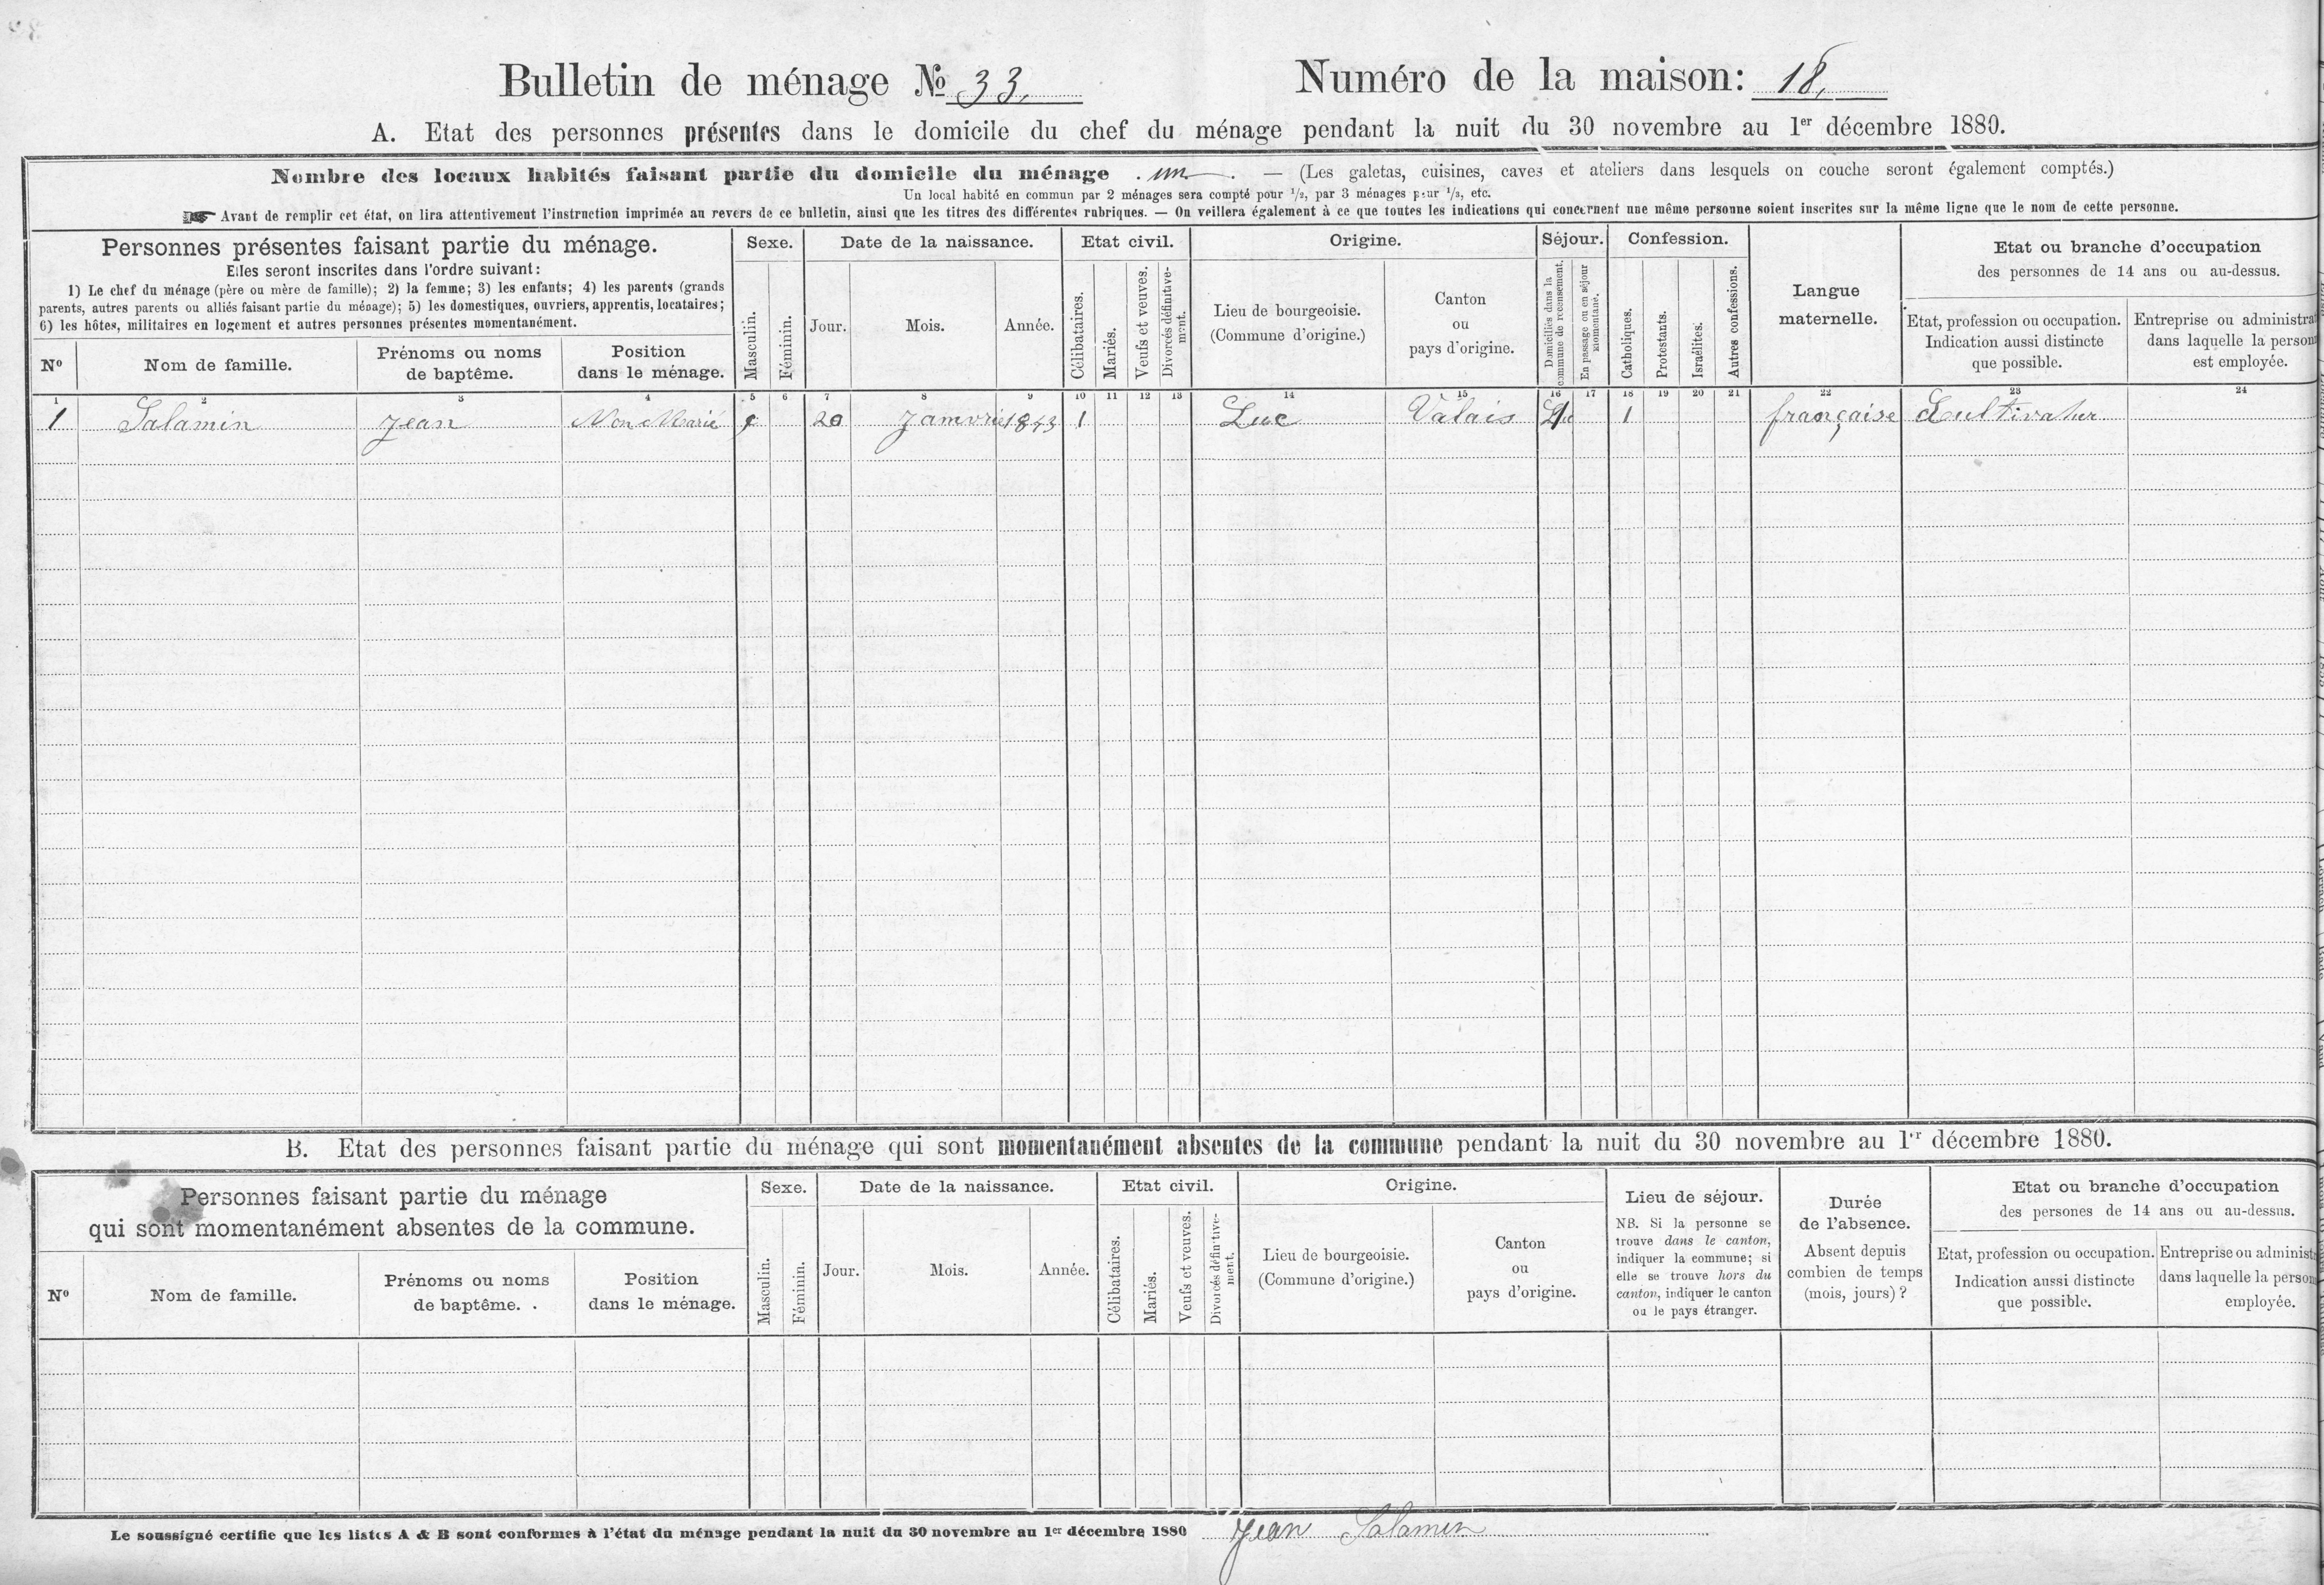 Bulletin de ménage № 33.
Numéro de la maison: 18.
A. Etat des personnes présentes dans le domicile du chef du ménage pendant la nuit du 30 novembre au 1er décembre 1880.
Nombre des locaux habités faisant partie du domicile du ménage . un . — (Les galetas, cuisines, caves et ateliers dans lesquels on couche seront également comptés.)
Un local habité en commun par 2 ménages sera compté pour 1/2, par 3 ménages pour 1/3, etc.
Avant de remplir cet état, on lira attentivement l'instruction imprimée au revers de ce bulletin, ainsi que les titres des différentes rubriques. — On veillera également à ce que toutes les indications qui concernent une même personne soient inscrites sur la même ligne que le nom de cette personne.
Personnes présentes faisant partie du ménage.
Elles seront inscrites dans l'ordre suivant:
1) Le chef du ménage (père ou mère de famille); 2) la femme; 3) les enfants; 4) les parents (grands
parents, autres parents ou alliés faisant partie du ménage); 5) les domestiques, ouvriers, apprentis, locataires;
6) les hôtes, militaires en logement et autres personnes présentes momentanément.
Nº
Nom de famille.
Prénoms ou noms
de baptême.
Position
dans le ménage.
Sexe.
Masculin.
Féminin.
Date de la naissance.
Jour.
Mois.
Année.
Etat civil.
Célibataires.
Mariés.
Veufs et veuves.
Divorcés définitive-
ment.
Origine.
Lieu de bourgeoisie.
(Commune d'origine.)
Canton
ou
pays d'origine.
Séjour.
Domiciliés dans la
commune de recensement.
En passage ou en séjour
momentané.
Confession.
Catholiques.
Protestants.
Israélites.
Autres confessions.
Langue
maternelle.
Etat ou branche d'occupation
des personnes de 14 ans ou au-dessus.
Etat, profession ou occupation.
Indication aussi distincte
que possible.
Entreprise ou administra
dans laquelle la person
est employée.
1 2 3 4 5 6 7 8 9 10 11 12 13 14 15 16 17 18 19 20 21 22 23 24
1 Salamin Jean Non Marié 20 Janvrie 1843 1 Luc Valais 1 française Cultivatur
B. Etat des personnes faisant partie du ménage qui sont momentanément absentes de la commune pendant la nuit du 30 novembre au 1er décembre 1880.
Personnes faisant partie du ménage
qui sont momentanément absentes de la commune.
Nº
Nom de famille.
Prénoms ou noms
de baptême.
Position
dans le ménage.
Sexe.
Masculin.
Féminin.
Date de la naissance.
Jour.
Mois.
Année.
Etat civil.
Célibataires.
Mariés.
Veufs et veuves.
Divorcés définitive-
ment.
Origine.
Lieu de bourgeoisie.
(Commune d'origine.)
Canton
ou
pays d'origine.
Lieu de séjour.
NB. Si la personne se
trouve dans le canton,
indiquer la commune; si
elle se trouve hors du
canton, indiquer le canton
ou le pays étranger.
Durée
de l'absence.
Absent depuis
combien de temps
(mois, jours)?
Etat ou branche d'occupation
des persones de 14 ans ou au-dessus.
Etat, profession ou occupation.
Indication aussi distincte
que possible.
Entreprise ou administ
dans laquelle la person
employée.
Le soussigné certifie que les listes A & B sont conformes à l'état du ménage pendant la nuit du 30 novembre au 1er décembre 1880 Jean Salamin